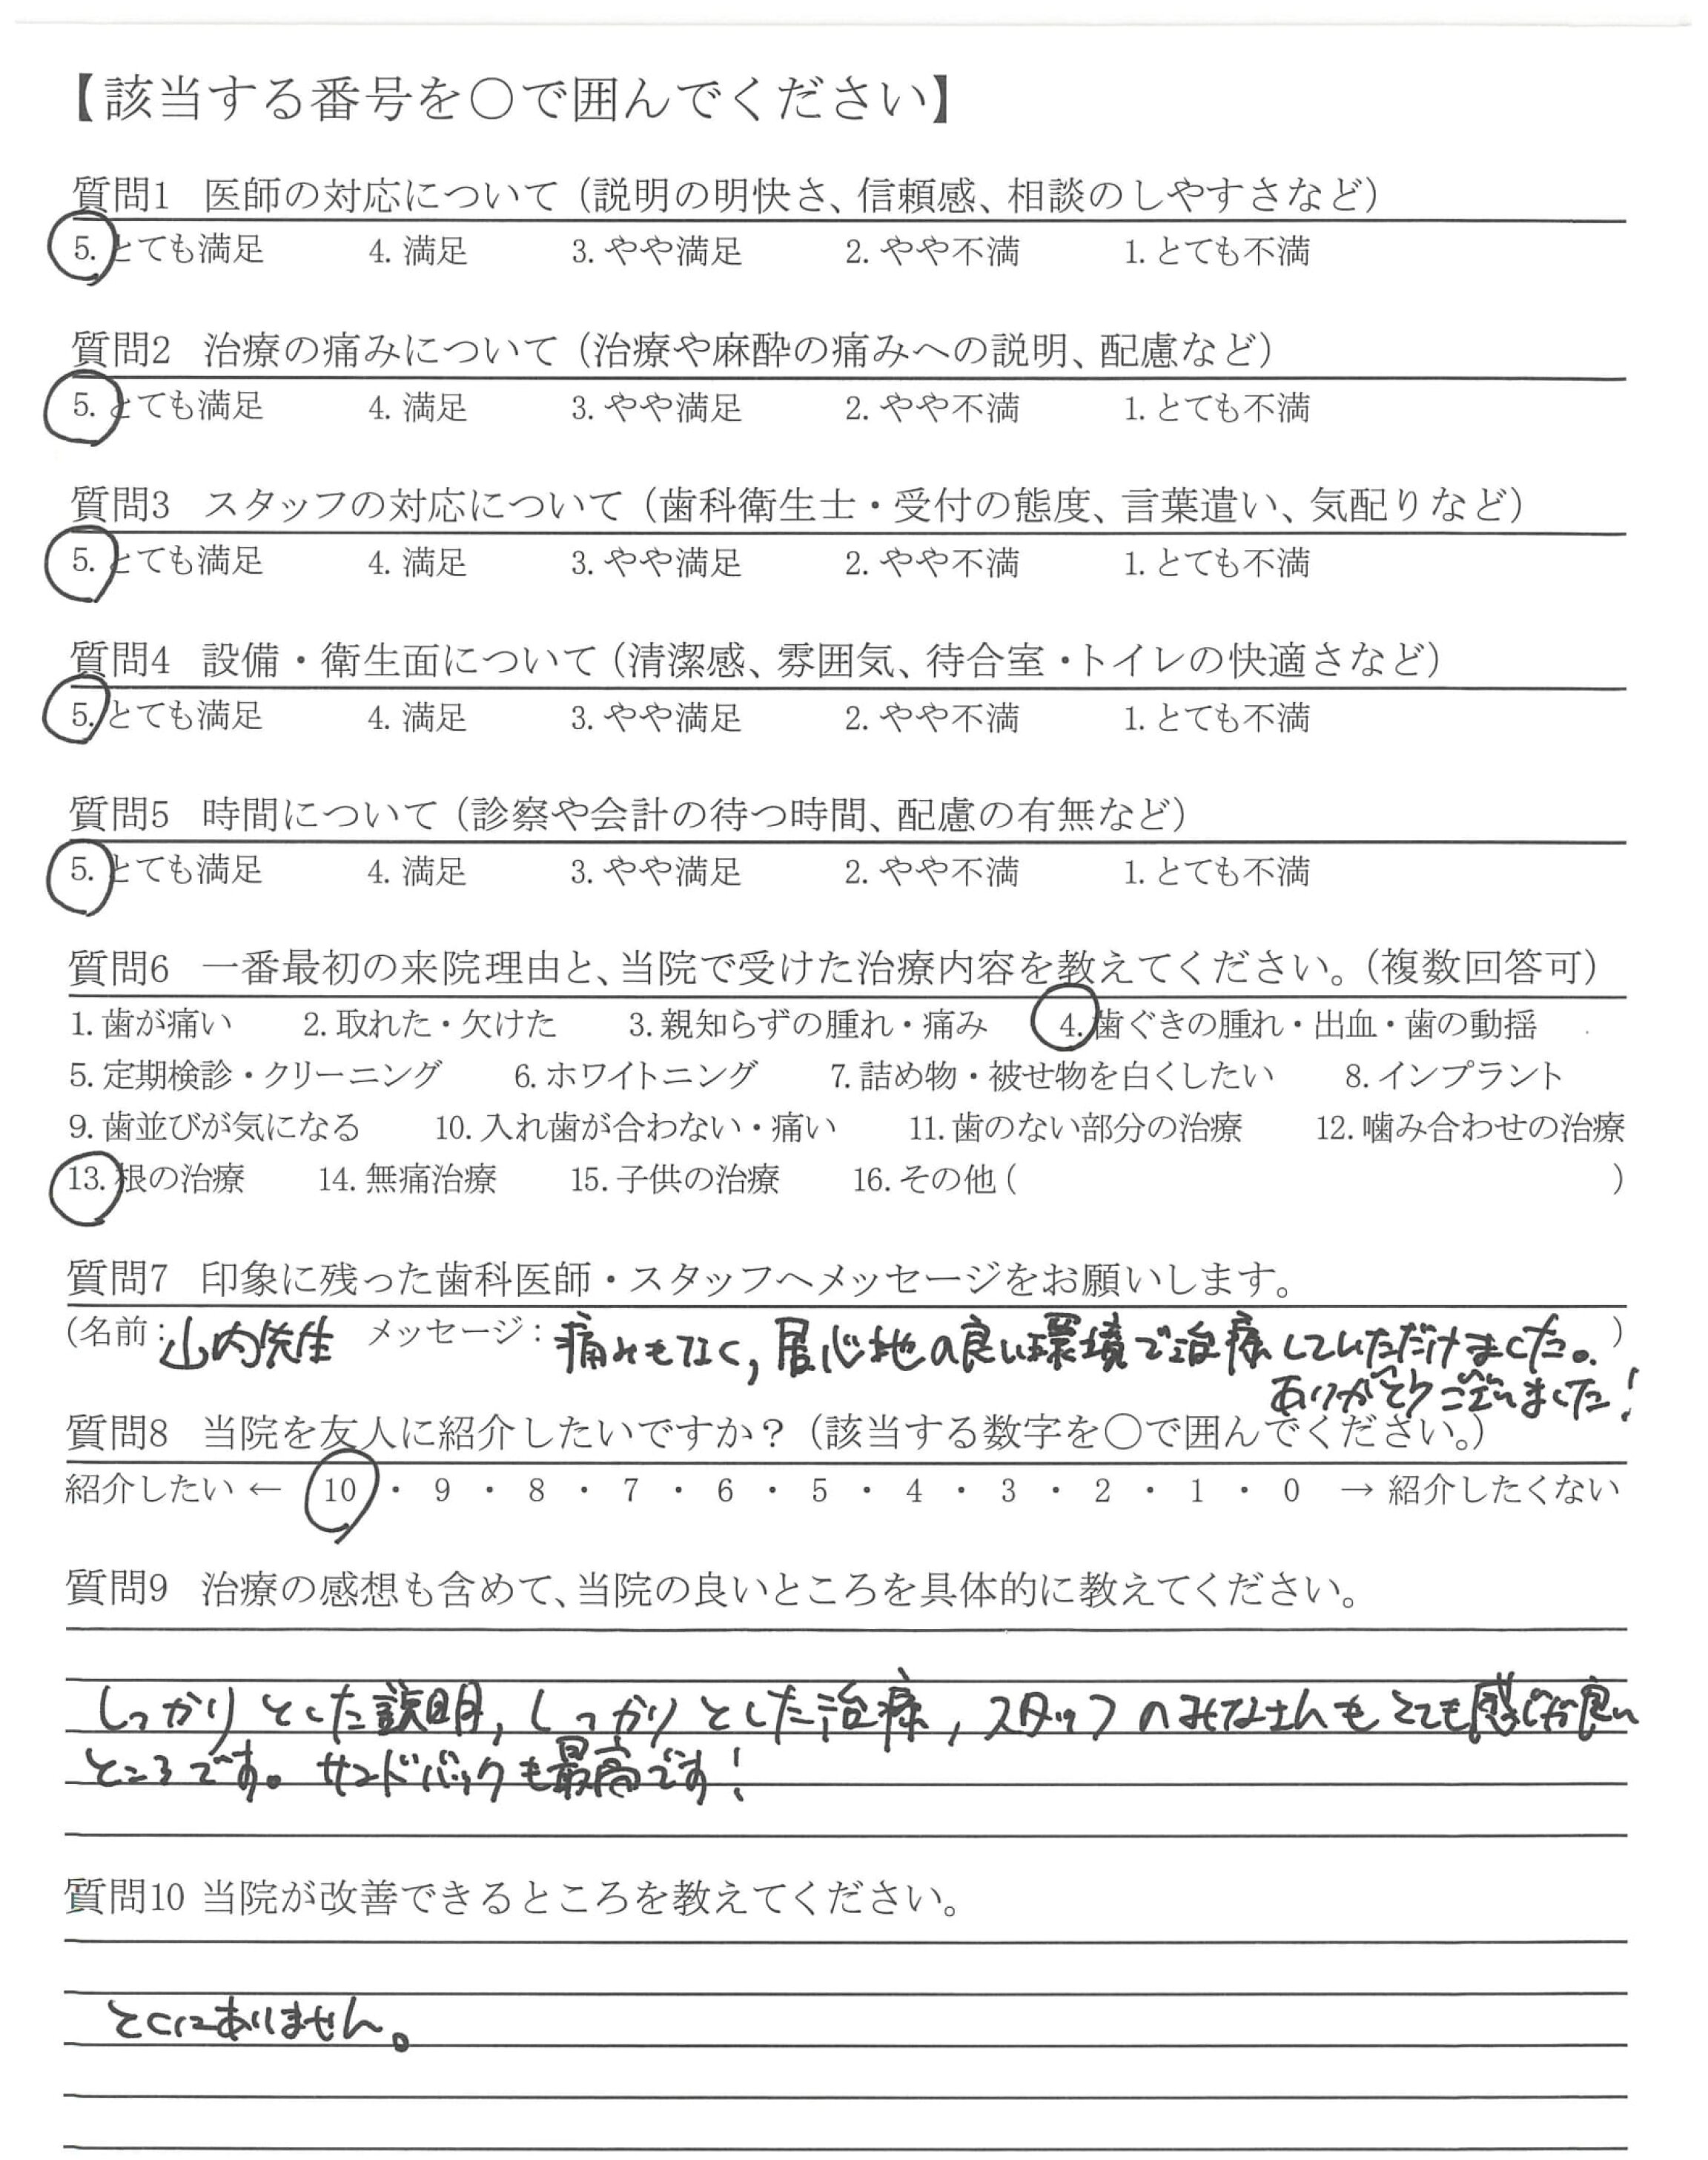 【該当する番号を○で囲んでください】
質問1 医師の対応について（説明の明快さ、信頼感、相談のしやすさなど）
5. とても満足 4. 満足 3. やや満足 2. やや不満 1. とても不満
質問2 治療の痛みについて（治療や麻酔の痛みへの説明、配慮など）
5. とても満足 4. 満足 3. やや満足 2. やや不満 1. とても不満
質問3 スタッフの対応について（歯科衛生士・受付の態度、言葉遣い、気配りなど）
5. とても満足 4. 満足 3. やや満足 2. やや不満 1. とても不満
質問4 設備・衛生面について（清潔感、雰囲気、待合室・トイレの快適さなど）
5. とても満足 4. 満足 3. やや満足 2. やや不満 1. とても不満
質問5 時間について（診察や会計の待つ時間、配慮の有無など）
5. とても満足 4. 満足 3. やや満足 2. やや不満 1. とても不満
質問6 一番最初の来院理由と、当院で受けた治療内容を教えてください。（複数回答可）
1. 歯が痛い 2. 取れた・欠けた 3. 親知らずの腫れ・痛み 4. 歯ぐきの腫れ・出血・歯の動揺
5. 定期検診・クリーニング 6. ホワイトニング 7. 詰め物・被せ物を白くしたい 8. インプラント
9. 歯並びが気になる 10. 入れ歯が合わない・痛い 11. 歯のない部分の治療 12. 噛み合わせの治療
13. 根の治療 14. 無痛治療 15. 子供の治療 16. その他（ ）
質問7 印象に残った歯科医師・スタッフへメッセージをお願いします。
（名前：山内先生 メッセージ：痛みもなく, 居心地の良い環境で治療していただけました。）
ありがとうございました！
質問8 当院を友人に紹介したいですか？（該当する数字を○で囲んでください。）
紹介したい ← 10 ・ 9 ・ 8 ・ 7 ・ 6 ・ 5 ・ 4 ・ 3 ・ 2 ・ 1 ・ 0 → 紹介したくない
質問9 治療の感想も含めて、当院の良いところを具体的に教えてください。
しっかりとした説明, しっかりとした治療, スタッフのみなさんもとても感じが良い
ところです。サンドバックも最高です！
質問10 当院が改善できるところを教えてください。
とくにありません。